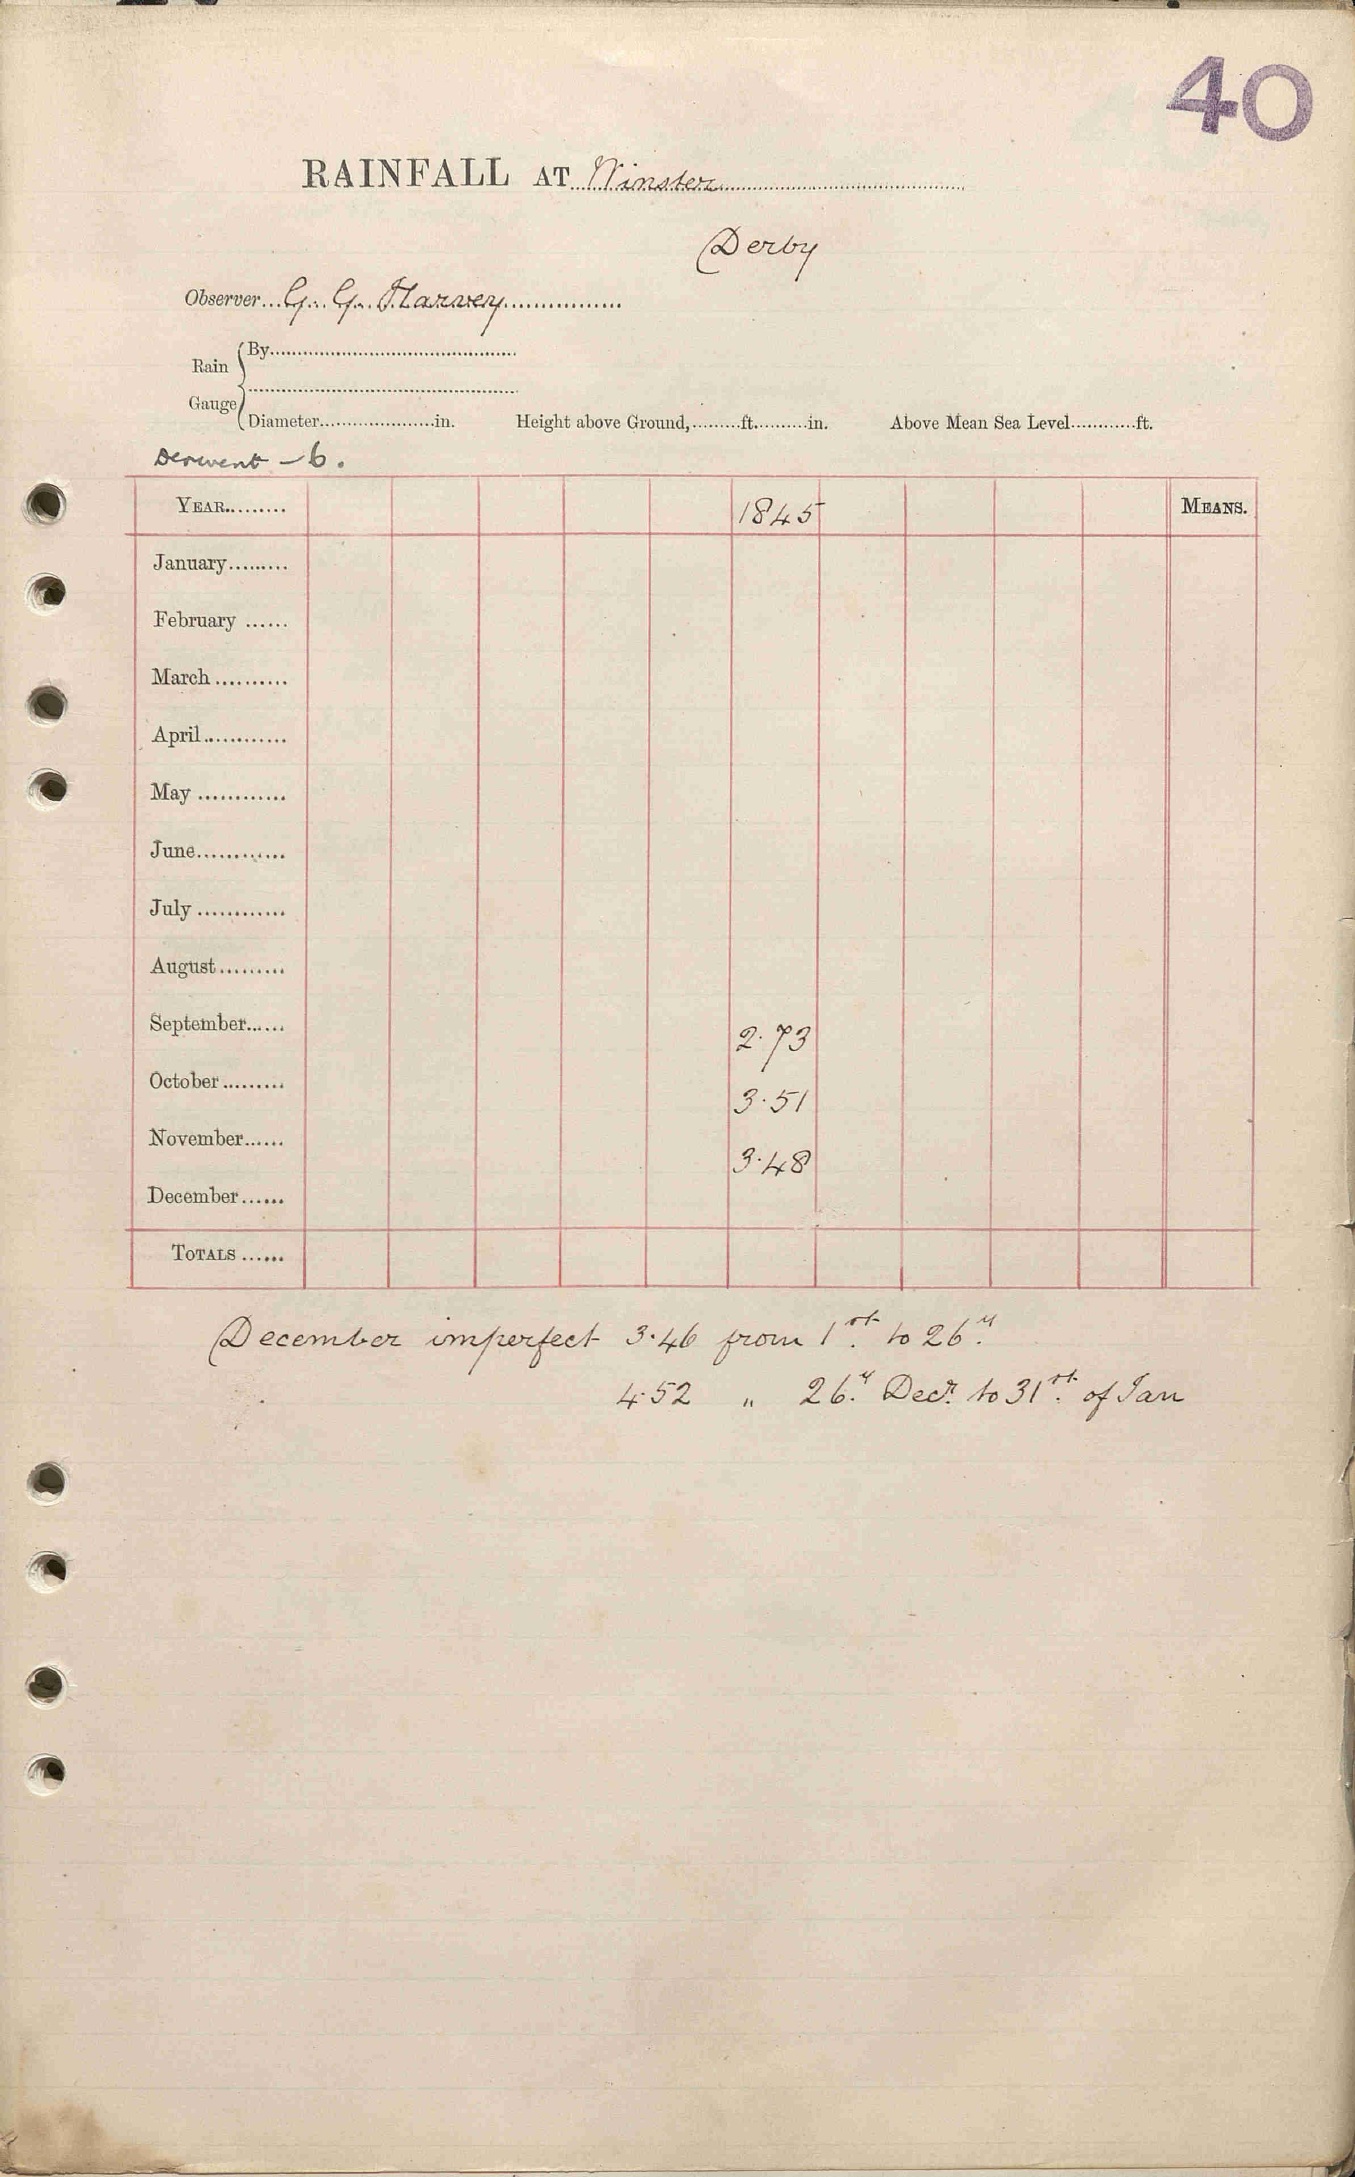 40
RAINFALL AT Winster
Derby
Observer... G. G. Harvey
Rain Gauge { By
Diameter in. Height above Ground, ft. in. Above Mean Sea Level ft.
Derwent - 6.
YEAR 1845 MEANS.
January
February
March
April
May
June
July
August
September 2.73
October 3.51
November 3.48
December
TOTALS
December imperfect 3.46 from 1st. to 26th.
4.52 " 26th. Decr. to 31st. of Jan